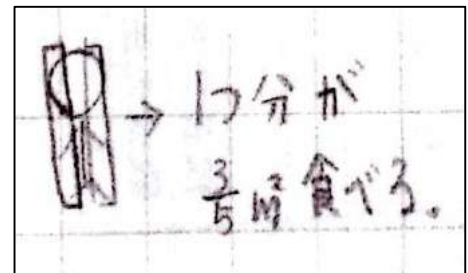 → 1つ分が
3/5 m² 食べる。